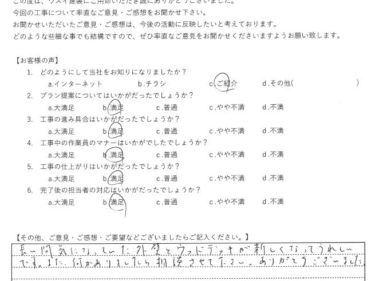 この度は、ウスイ建装にご用命いただき誠にありがとうございました。
今回の工事について率直なご意見・ご感想をお聞かせ下さい。
お聞かせいただいたご意見・ご感想は、今後の活動に反映したいと考えております。
どのような些細な事でも結構ですので、ぜひ率直なご意見をお聞かせくださいますようお願い致します。
【お客様の声】
1. どのようにして当社をお知りになりましたか?
a.インターネット b.チラシ c.ご紹介 d.その他( )
2. プラン提案についてはいかがだったでしょうか?
a.大満足 b.満足 c.普通 c.やや不満 d.不満
3. 工事の進み具合はいかがだったでしょうか?
a.大満足 b.満足 c.普通 c.やや不満 d.不満
4. 工事中の作業員のマナーはいかがでしたでしょうか?
a.大満足 b.満足 c.普通 c.やや不満 d.不満
5. 工事の仕上がりはいかがだったでしょうか?
a.大満足 b.満足 c.普通 c.やや不満 d.不満
6. 完了後の担当者の対応はいかがだったでしょうか?
a.大満足 b.満足 c.普通 c.やや不満 d.不満
【その他、ご意見・ご感想・ご要望などございましたらご記入ください。】
長い間気になっていた外壁とウッドデッキが新しくなってうれしい
です。また、何かありましたら相談させて下さい。ありがとうございました。